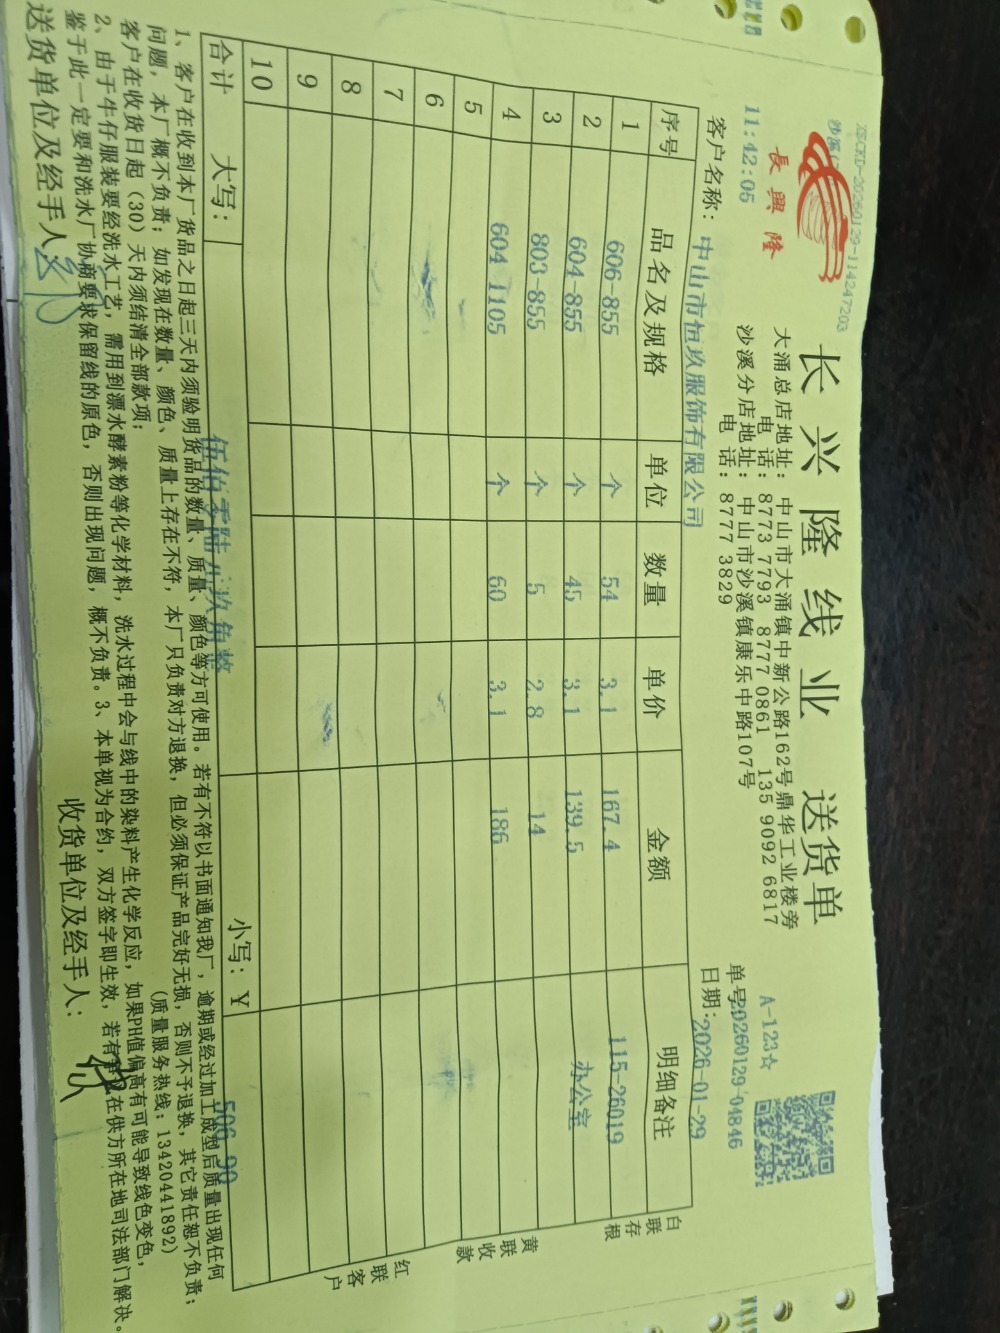 XSCKD-20260129-114247203
沙溪
長興隆
11:42:05
长兴隆线业 送货单
大涌总店地址：中山市大涌镇中新公路162号鼎华工业楼旁
电 话：8773 7793 8777 0861 135 9092 6817
沙溪分店地址：中山市沙溪镇康乐中路107号
电 话：8777 3829
A-123☆
单号：20260129-04846
客户名称：中山市恒玖服饰有限公司
日期：2026-01-29
序号 品名及规格 单位 数量 单价 金额 明细备注
1 606-855 个 54 3.1 167.4 115-26019
2 604-855 个 45 3.1 139.5 办公室
3 803-855 个 5 2.8 14
4 604 1105 个 60 3.1 186
5
6
7
8
9
10
合计 大写：伍佰零陆元玖角整 小写：Y 506.90
白联存根
黄联收款
红联客户
1、客户在收到本厂货品之日起三天内须验明货品的数量、质量、颜色等方可使用。若有不符以书面通知我厂，逾期或经过加工成型后质量出现任何
问题，本厂概不负责；如发现在数量、颜色、质量上存在不符，本厂只负责对方退换，但必须保证产品完好无损，否则不予退换，其它责任恕不负责；
客户在收货日起（30）天内须结清全部款项； (质量服务热线：13420441892)
2、由于牛仔服装要经洗水工艺，需用到漂水酵素粉等化学材料，洗水过程中会与线中的染料产生化学反应，如果PH值偏高有可能导致线色变色，
鉴于此一定要和洗水厂协商要求保留线的原色，否则出现问题，概不负责。3、本单视为合约，双方签字即生效，若有 在供方所在地司法部门解决。
送货单位及经手人：
收货单位及经手人：